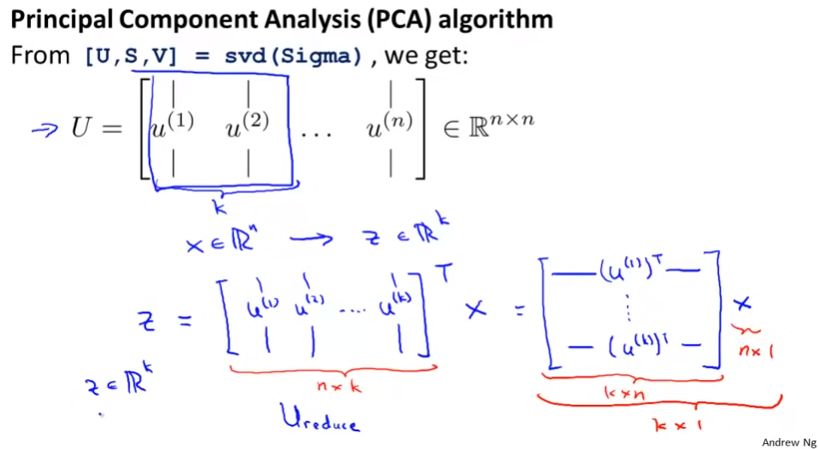 Principal Component Analysis (PCA) algorithm
From [U,S,V] = svd(Sigma) , we get:
→ U = [ u⁽¹⁾ u⁽²⁾ … u⁽ⁿ⁾ ] ∈ ℝⁿˣⁿ
k
x ∈ ℝⁿ → z ∈ ℝᵏ
z = [ u⁽¹⁾ u⁽²⁾ .... u⁽ᵏ⁾ ]ᵀ x = [ — (u⁽¹⁾)ᵀ — ⋮ — (u⁽ᵏ⁾)ᵀ — ] x
n×1
z ∈ ℝᵏ
n×k
k×n
Ureduce
k×1
Andrew Ng